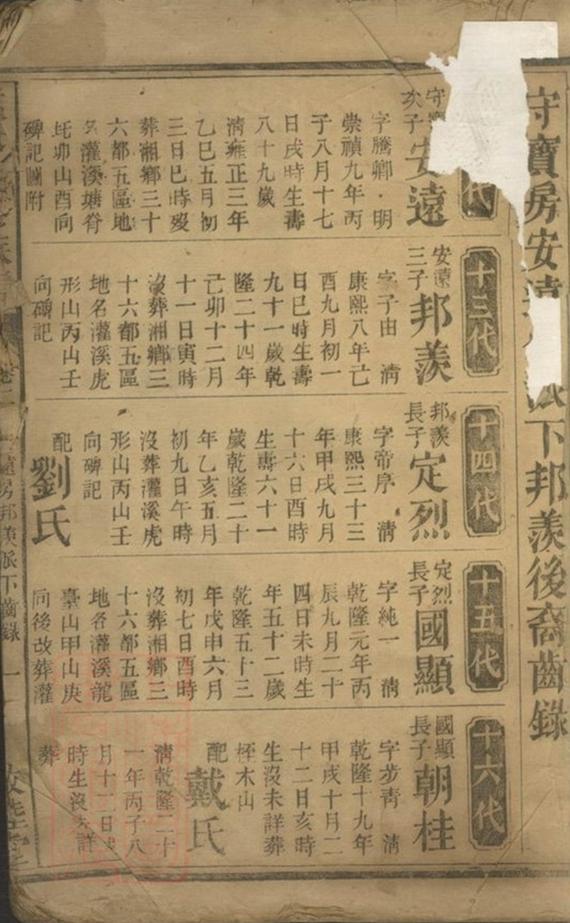 守寶房安遠
派下邦羨後裔齒錄
代
守寶
次子
安遠
字騰卿·明
崇禎九年丙
于八月十七
日戌時生壽
八十九歲
清雍正三年
乙巳五月初
三日巳時歿
葬湘鄉三十
六都五區地
名灌溪塘脊
坵卯山酉向
碑記圖附
十三代
安遠
三子
邦羨
字子由 清
康熙八年己
酉九月初一
日巳時生壽
九十一歲乾
隆二十四年
己卯十二月
十一日寅時
沒葬湘鄉三
十六都五區
地名灌溪虎
形山丙山壬
向碑記
十四代
邦羨
長子
定烈
字帝序 清
康熙三十三
年甲戌九月
十六日酉時
生壽六十一
歲乾隆二十
年乙亥五月
初九日午時
沒葬灌溪虎
形山丙山壬
向碑記
配
劉氏
十五代
定烈
長子
國顯
字純一 清
乾隆元年丙
辰九月二十
四日未時生
年五十二歲
乾隆五十三
年戊申六月
初七日酉時
沒葬湘鄉三
十六都五區
地名灌溪龍
臺山甲山庚
向後改葬灌
十六代
國顯
長子
朝桂
字步青 清
乾隆十九年
甲戌十月二
十二日亥時
生沒未詳葬
桎木山
配
戴氏
清乾隆二十
一年丙子八
月十二日
時生沒未詳
葬
遠房邦羨派下齒錄 一